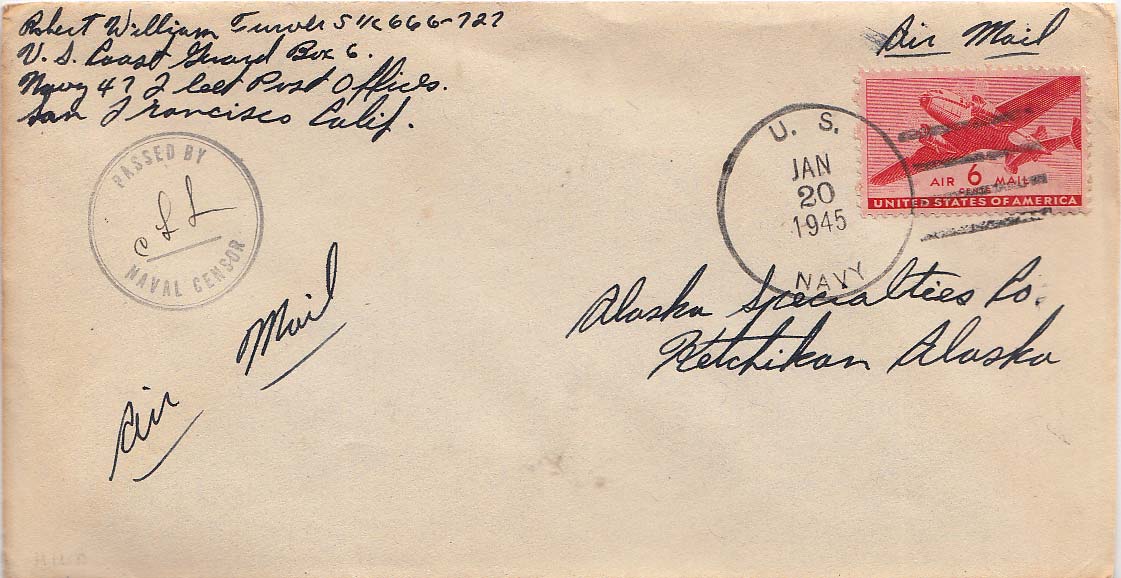 Robert William Turver S 1/c 666-727
U. S. Coast Guard Box 6.
Navy 47 Fleet Post Office.
San Francisco Calif.
Air Mail
U. S.
JAN
20
1945
NAVY
AIR 6 MAIL
CENTS
UNITED STATES OF AMERICA
PASSED BY
NAVAL CENSOR
Alaska Specialties Co.
Ketchikan Alaska
Air Mail